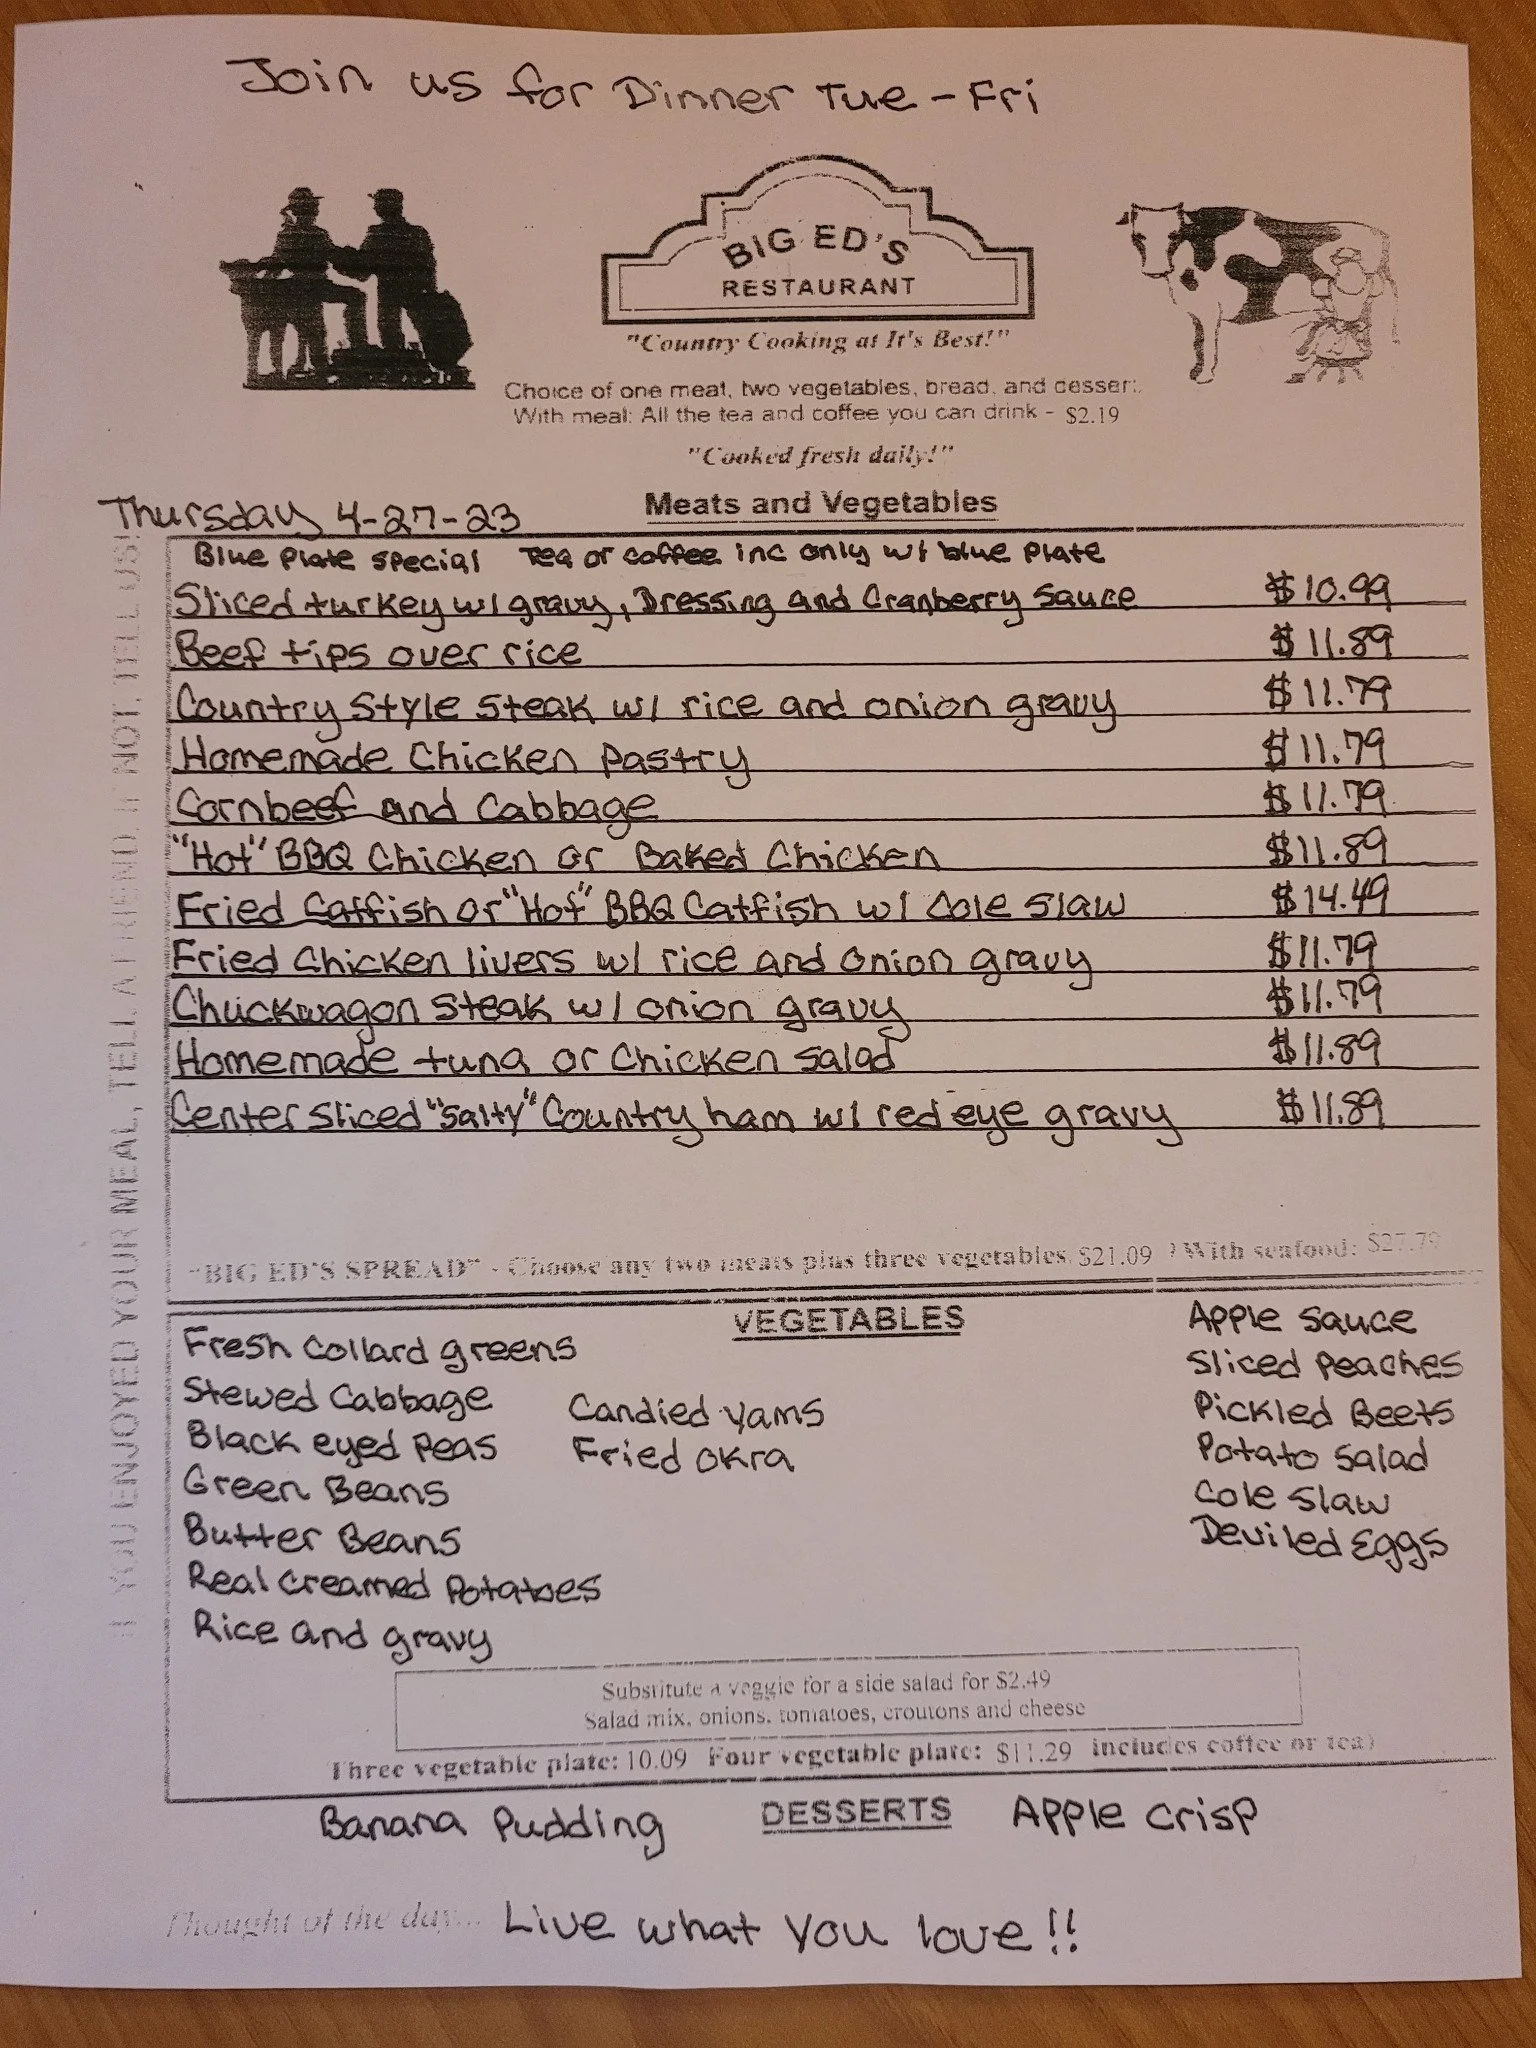 Join us for Dinner Tue - Fri
BIG ED'S
RESTAURANT
"Country Cooking at It's Best!"
Choice of one meat, two vegetables, bread, and dessert.
With meal: All the tea and coffee you can drink - $2.19
"Cooked fresh daily!"
Thursday 4-27-23
Meats and Vegetables
Blue Plate Special Tea or coffee inc only w/ blue plate
Sliced turkey w/ gravy, Dressing and Cranberry Sauce $10.99
Beef tips over rice $11.89
Country Style Steak w/ rice and onion gravy $11.79
Homemade Chicken Pastry $11.79
Cornbeef and Cabbage $11.79
"Hot" BBQ Chicken or Baked Chicken $11.89
Fried Catfish or "Hot" BBQ Catfish w/ Cole Slaw $14.49
Fried Chicken livers w/ rice and onion gravy $11.79
Chuckwagon Steak w/ onion gravy $11.79
Homemade tuna or Chicken Salad $11.89
Center Sliced "Salty" Country ham w/ red eye gravy $11.89
"BIG ED'S SPREAD" - Choose any two meats plus three vegetables $21.09 With seafood: $27.79
IF YOU ENJOYED YOUR MEAL, TELL A FRIEND. IF NOT, TELL US!
VEGETABLES
Fresh Collard greens
Stewed Cabbage
Black eyed Peas
Green Beans
Butter Beans
Real Creamed Potatoes
Rice and gravy
Candied Yams
Fried Okra
Apple Sauce
Sliced Peaches
Pickled Beets
Potato Salad
Cole Slaw
Deviled Eggs
Substitute a veggie for a side salad for $2.49
Salad mix, onions, tomatoes, croutons and cheese
Three vegetable plate: 10.09 Four vegetable plate: $11.29 includes coffee or tea)
DESSERTS
Banana Pudding Apple Crisp
Thought of the day... Live what you love!!